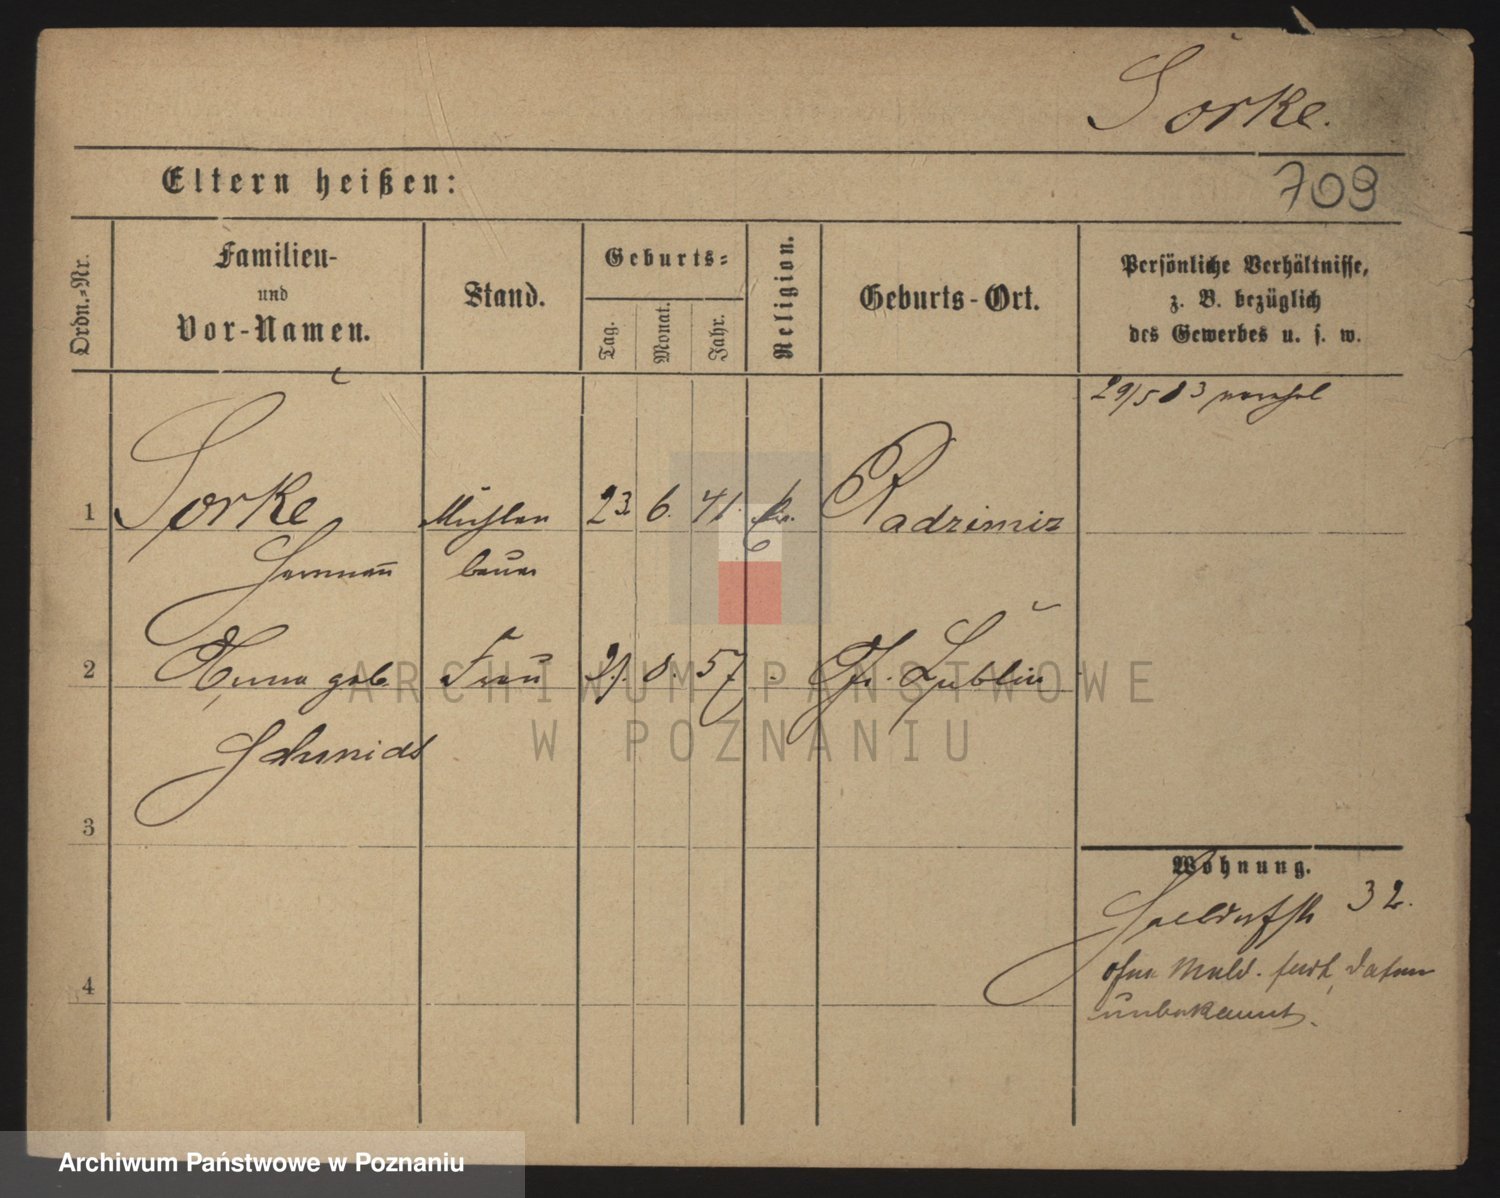 Sörke.
Eltern heißen:
709
Ordn.-Nr.
Familien-
und
Vor-Namen.
Stand.
Geburts-
Tag.
Monat.
Jahr.
Religion.
Geburts-Ort.
Persönliche Verhältnisse,
z. B. bezüglich
des Gewerbes u. s. w.
29/5 83
1 Sörke Mühlen 23. 6. 41. Radzimiz
Hermann bauer
2 Anna geb. Frau 8. 57 Lublin
Schmidt
3
Wohnung.
32.
4
ohne Meld. fort, Datum
unbekannt.
ARCHIWUM PAŃSTWOWE
W POZNANIU
Archiwum Państwowe w Poznaniu